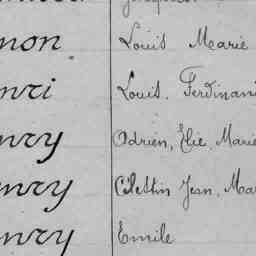 mon Louis Marie
nri Louis. Ferdinand
nry Odrien, Élie, Marie
nry Célestin Jean, Mar
nry Emile